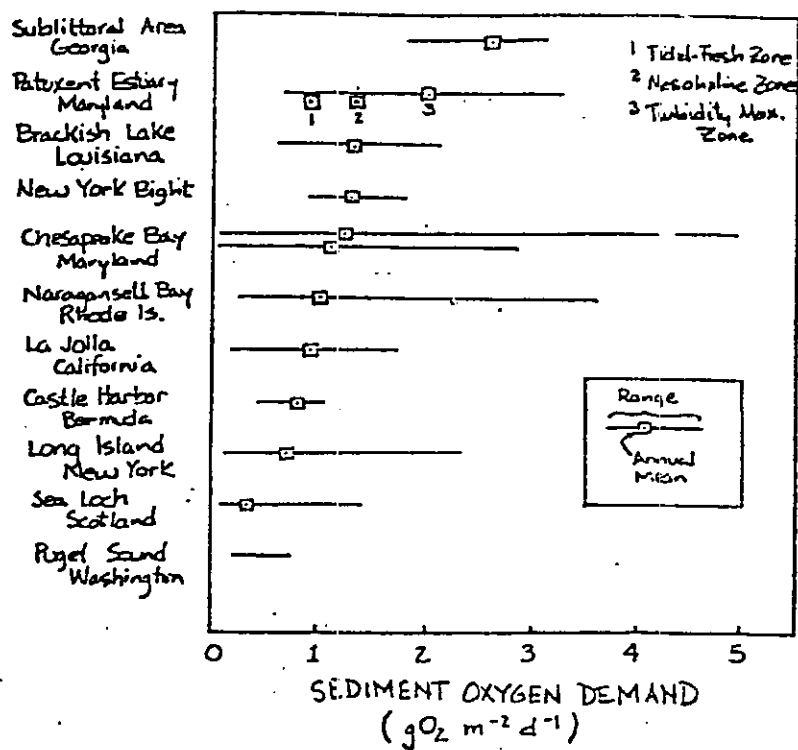 Sublittoral Area
Georgia
Patuxent Estuary
Maryland
Brackish Lake
Louisiana
New York Bight
Chesapeake Bay
Maryland
Naragansell Bay
Rhode Is.
La Jolla
California
Castle Harbor
Bermuda
Long Island
New York
Sea Loch
Scotland
Puget Sound
Washington
1 Tidal-Fresh Zone
2 Mesohaline Zone
3 Turbidity Max.
Zone
1 2 3
Range
Annual
Mean
0 1 2 3 4 5
SEDIMENT OXYGEN DEMAND
(gO₂ m⁻² d⁻¹)